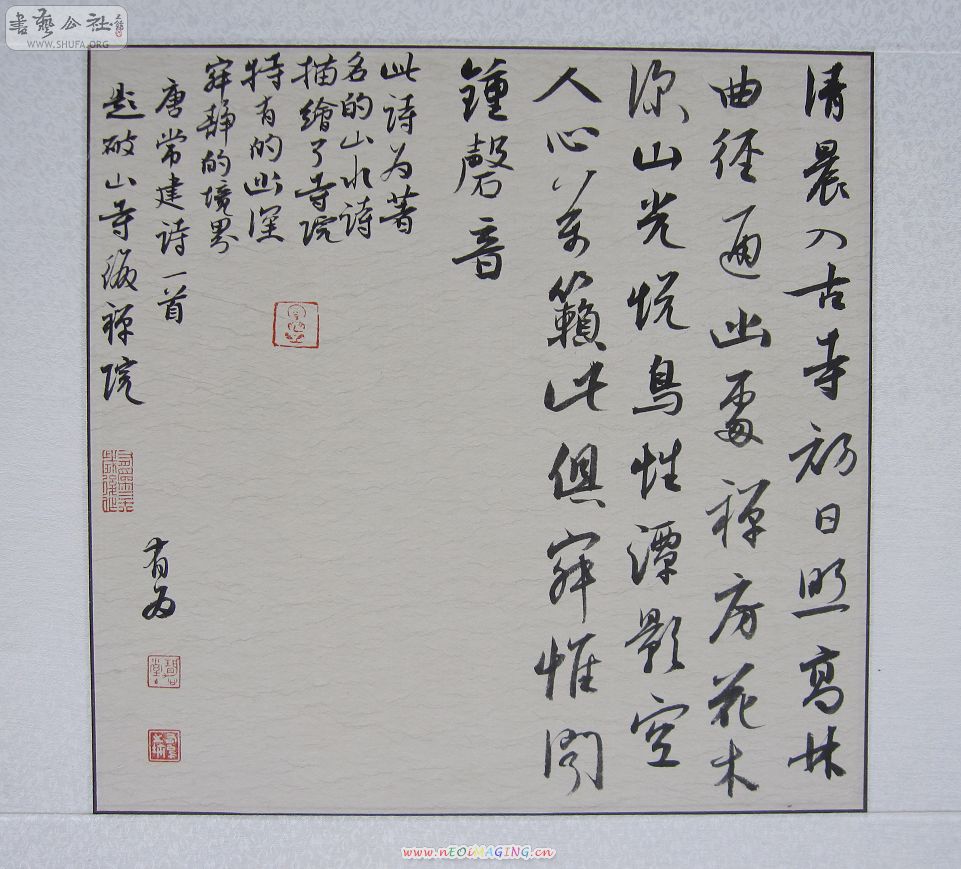 書藝公社
WWW.SHUFA.ORG
清晨入古寺初日照高林
曲徑通幽處禅房花木
深山光悦鳥性潭影空
人心萬籟此俱寂惟聞
鍾磬音
此詩为著
名的山水詩
描繪了寺院
特有的幽深
寂静的境界
唐常建詩一首
题破山寺後禅院
有为
www.nEOiMAGING.cn